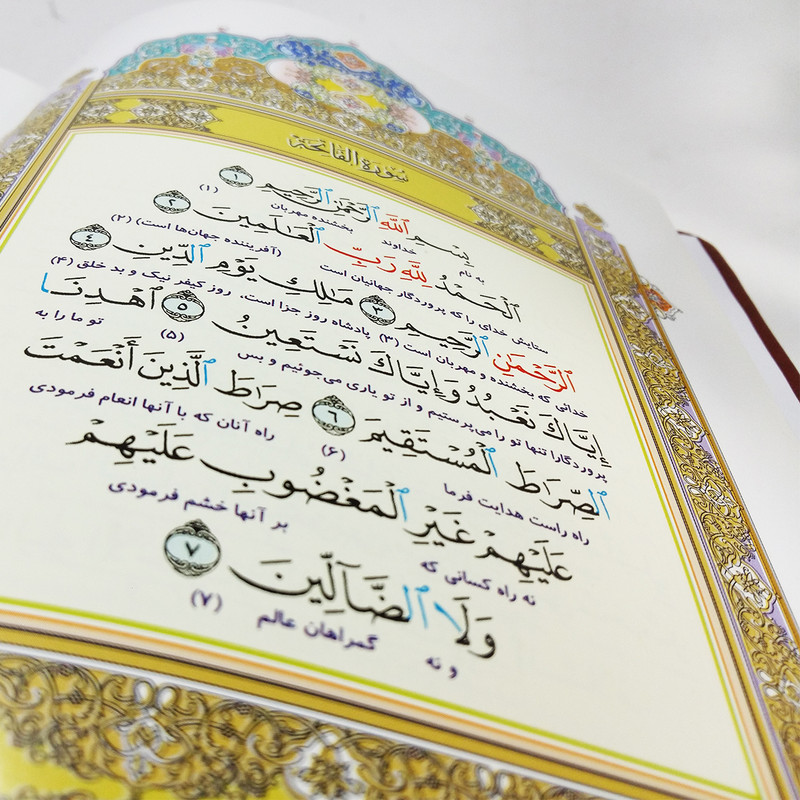 سورة الفاتحة
بِسْمِ ٱللَّهِ ٱلرَّحْمَٰنِ ٱلرَّحِيمِ ١
به نام خداوند بخشنده مهربان (۱)
ٱلْحَمْدُ لِلَّهِ رَبِّ ٱلْعَالَمِينَ ٢
ستایش خدای را که پروردگار جهانیان است (آفریننده جهان‌ها است) (۲)
ٱلرَّحْمَٰنِ ٱلرَّحِيمِ ٣ مَالِكِ يَوْمِ ٱلدِّينِ ٤
خدائی که بخشنده و مهربان است (۳) پادشاه روز جزا است. روز کیفر نیک و بد خلق (۴)
إِيَّاكَ نَعْبُدُ وَإِيَّاكَ نَسْتَعِينُ ٥ ٱهْدِنَا
پروردگارا تنها تو را می‌پرستیم و از تو یاری می‌جوئیم و بس (۵) تو ما را به
ٱلصِّرَاطَ ٱلْمُسْتَقِيمَ ٦ صِرَاطَ ٱلَّذِينَ أَنْعَمْتَ
راه راست هدایت فرما (۶) راه آنان که با آنها انعام فرمودی
عَلَيْهِمْ غَيْرِ ٱلْمَغْضُوبِ عَلَيْهِمْ
نه راه کسانی که بر آنها خشم فرمودی
وَلَا ٱلضَّآلِّينَ ٧
و نه گمراهان عالم (۷)